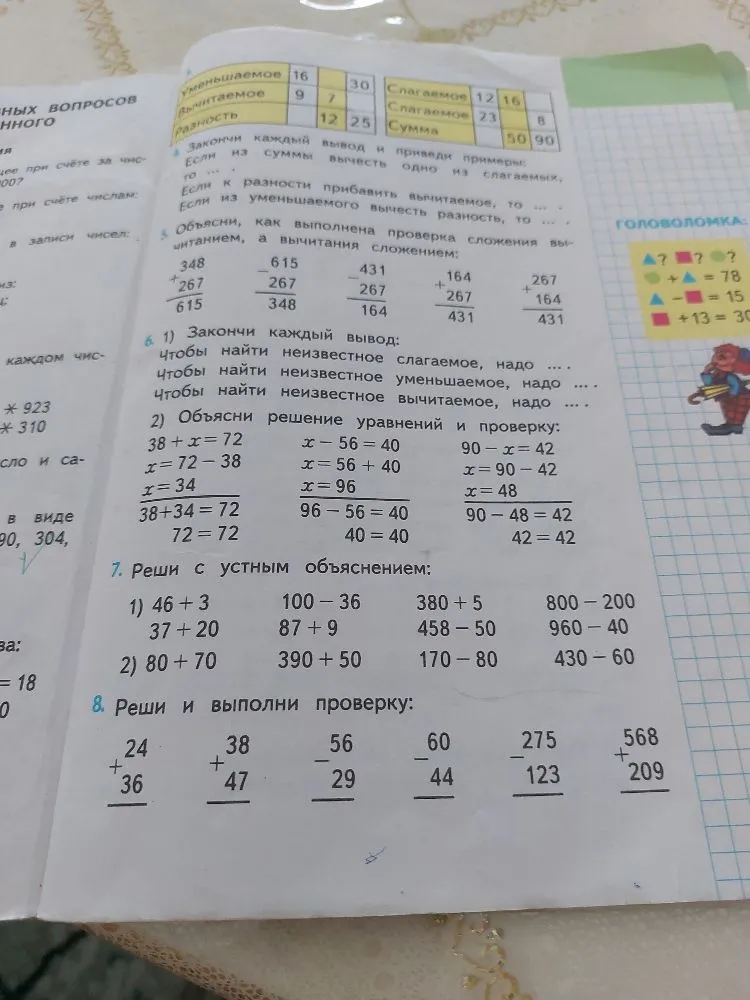 НЫХ ВОПРОСОВ
ЕННОГО
ия
щее при счёте за чис-
000?
е при счёте числам:
в записи чисел:
из:
ц:
каждом чис-
* 923
* 310
сло и са-
в виде
90, 304,
ва:
= 18
0
Уменьшаемое 16 30
Вычитаемое 9 7
Разность 12 25
Слагаемое 12 16
Слагаемое 23 8
Сумма 50 90
4. Закончи каждый вывод и приведи примеры:
Если из суммы вычесть одно из слагаемых,
то ... .
Если к разности прибавить вычитаемое, то ... .
Если из уменьшаемого вычесть разность, то ... .
5. Объясни, как выполнена проверка сложения вы-
читанием, а вычитания сложением:
348 615 431 164 267
+ − − + +
267 267 267 267 164
615 348 164 431 431
6. 1) Закончи каждый вывод:
Чтобы найти неизвестное слагаемое, надо ... .
Чтобы найти неизвестное уменьшаемое, надо ... .
Чтобы найти неизвестное вычитаемое, надо ... .
2) Объясни решение уравнений и проверку:
38 + x = 72 x − 56 = 40 90 − x = 42
x = 72 − 38 x = 56 + 40 x = 90 − 42
x = 34 x = 96 x = 48
38+34 = 72 96 − 56 = 40 90 − 48 = 42
72 = 72 40 = 40 42 = 42
7. Реши с устным объяснением:
1) 46 + 3 100 − 36 380 + 5 800 − 200
37 + 20 87 + 9 458 − 50 960 − 40
2) 80 + 70 390 + 50 170 − 80 430 − 60
8. Реши и выполни проверку:
24 38 56 60 275 568
+ + − − − +
36 47 29 44 123 209
ГОЛОВОЛОМКА:
▲? ■? ●?
● + ▲ = 78
▲ − ■ = 15
■ + 13 = 30